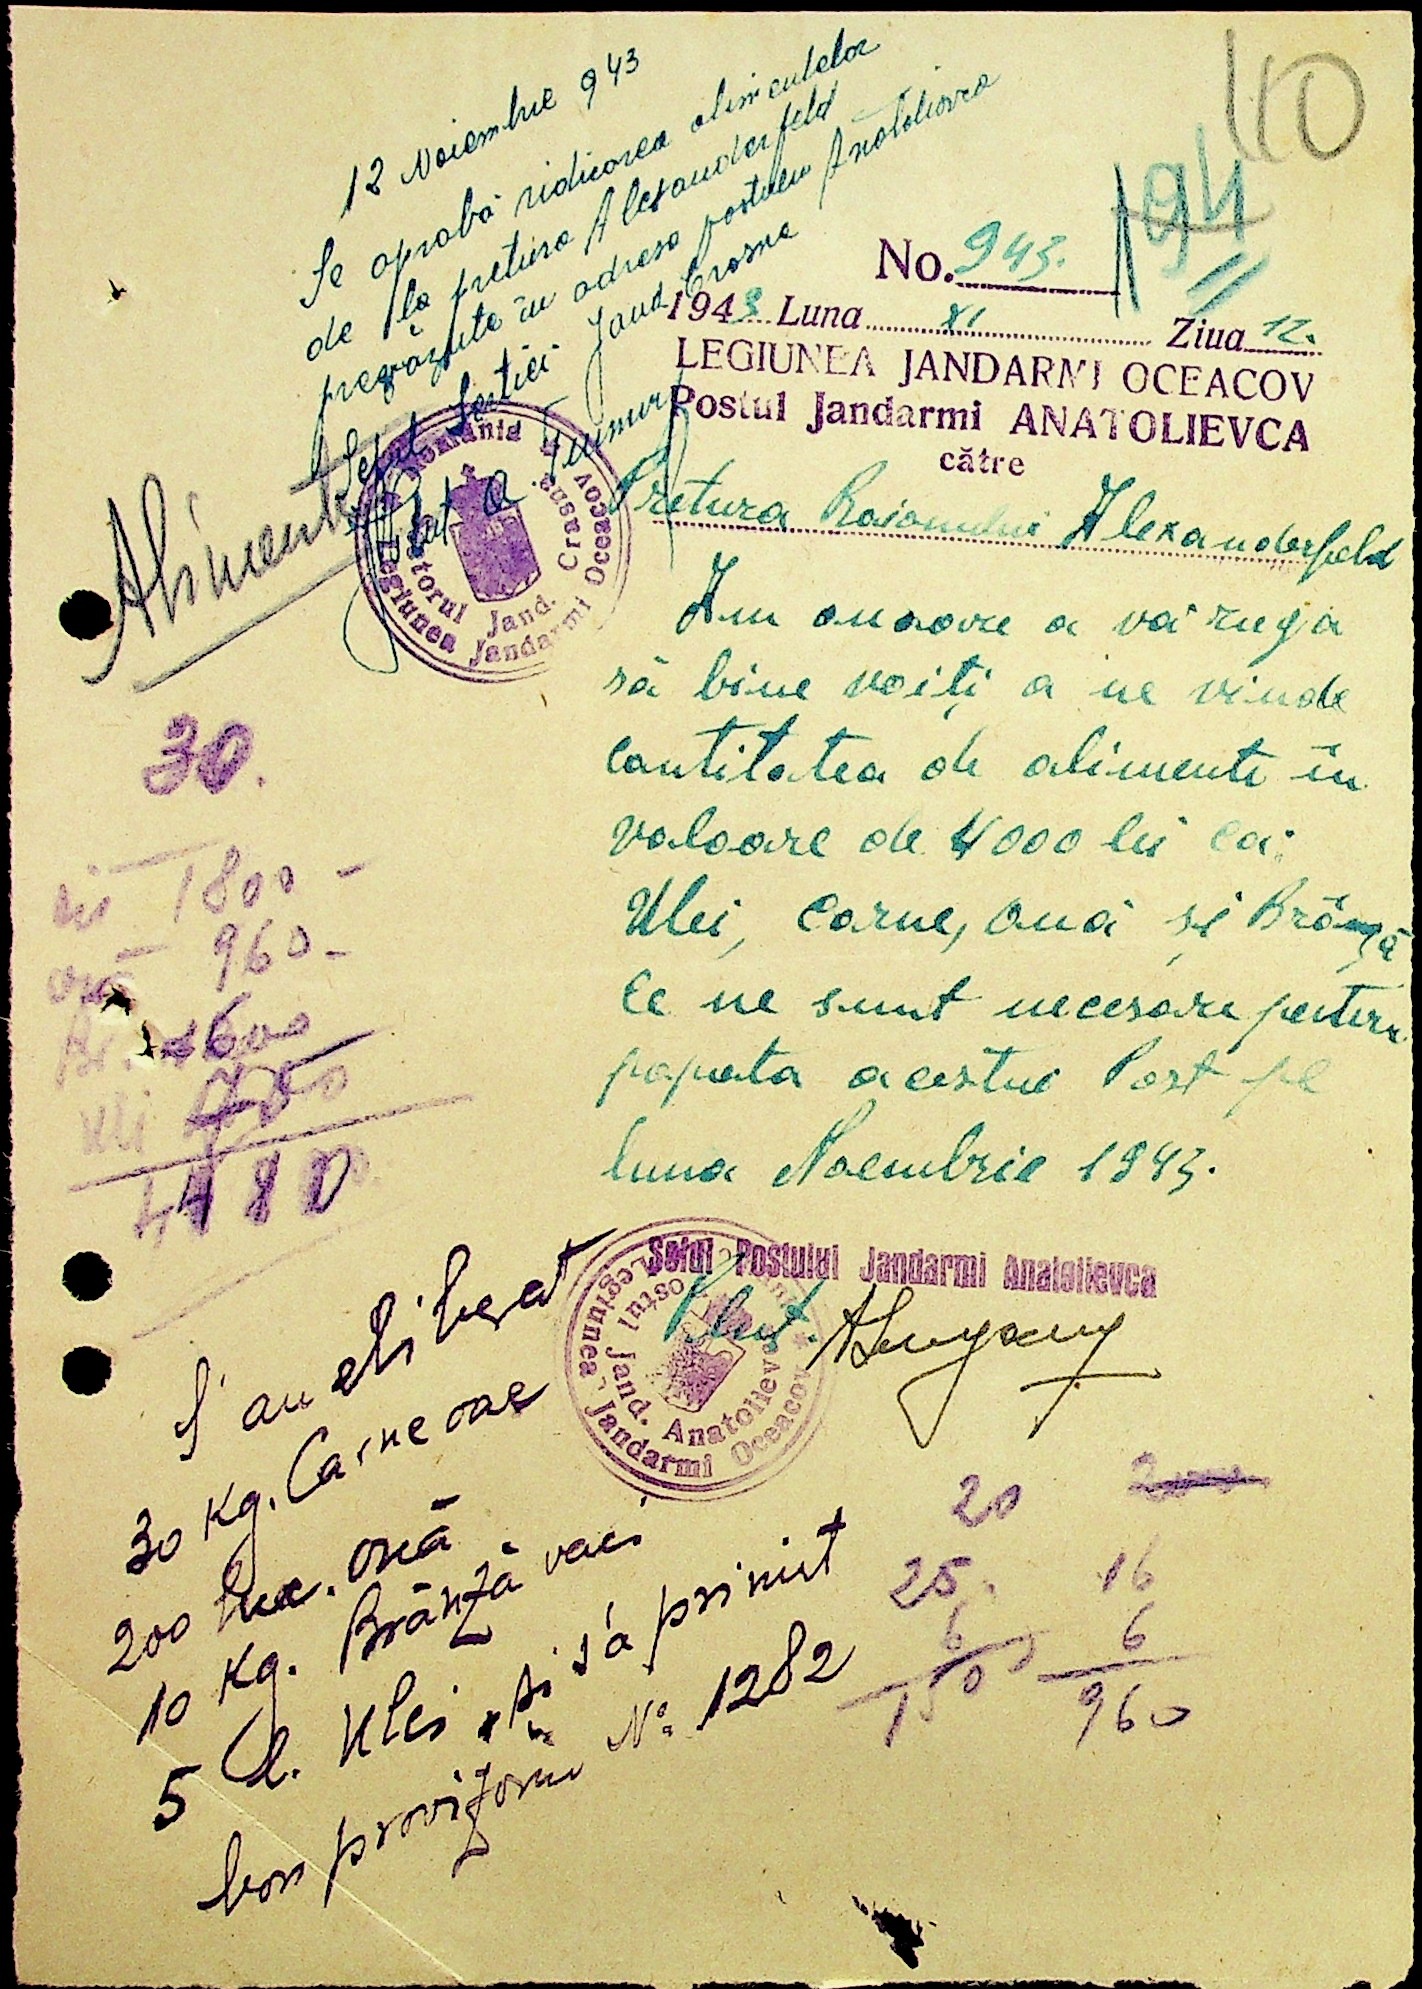 40
12 Noiembrie 943
Se aprobă ridicarea alimentelor
de la pretura Alexanderfeld
prevăzute în adresa postului Anatolievca
Șeful Secției Jand. Crasna
194
No. 943.
1943 Luna XI Ziua 12.
LEGIUNEA JANDARMI OCEACOV
Postul Jandarmi ANATOLIEVCA
către
Pretura Raionului Alexanderfeld
Alimente
România
Legiunea Jandarmi Oceacov
Jand. Crasna
Am onoare a vă ruga
să bine voiți a ne vinde
cantitatea de alimente în
valoare de 4000 lei ca:
Ulei, Carne, Ouă și Brânză
Ce ne sunt necesare pentru
popota acestui Post pe
luna Noembrie 1943.
30.
1800 –
ouă 960 –
Br. 1600
Uli
4480
Șeful Postului Jandarmi Anatolievca
Plut.
Legiunea Jandarmi Oceacov
Postul Jand. Anatolievca
S'au eliberat
30 Kg. Carne oae
200 buc. ouă
10 Kg. Brânză vaci
5 Ulei și s'a primit
bon provizoriu No. 1282
20
25. 16
6 6
150 960